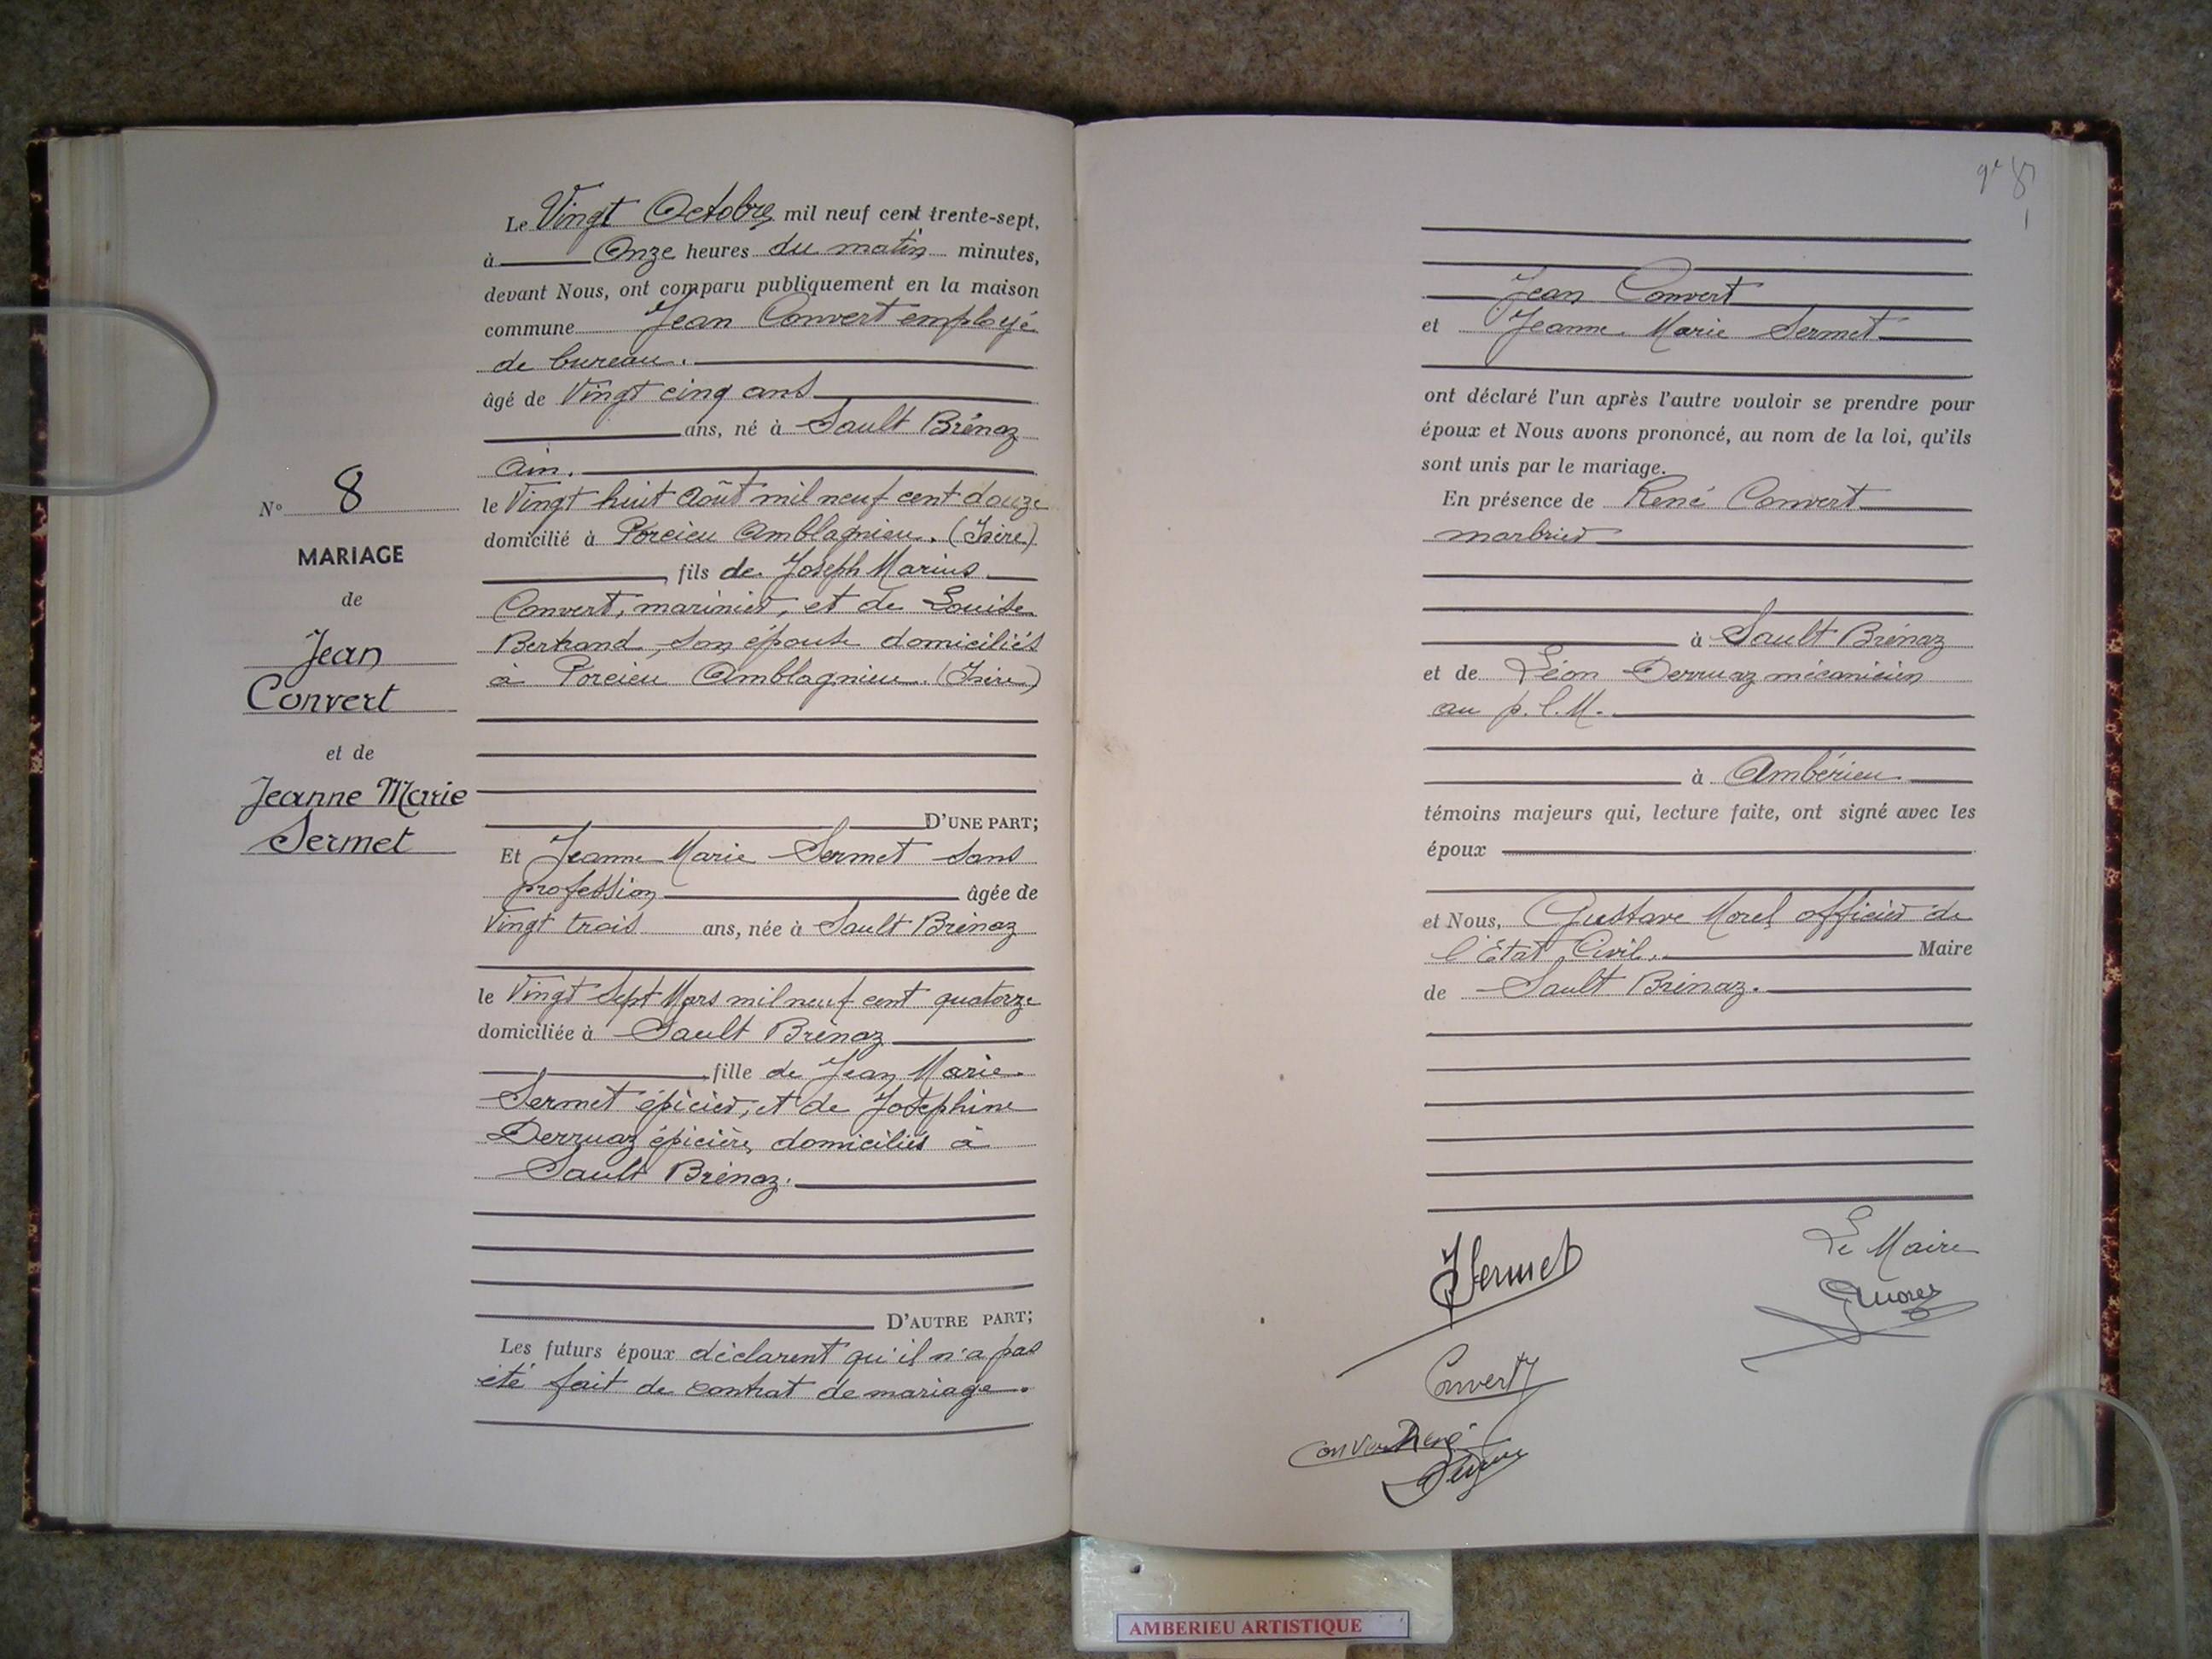 N° 8
MARIAGE
de
Jean
Convert
et de
Jeanne Marie
Sermet
Le Vingt Octobre mil neuf cent trente-sept,
à Onze heures du matin minutes,
devant Nous, ont comparu publiquement en la maison
commune Jean Convert employé
de bureau.
âgé de Vingt cinq ans
ans, né à Sault Brénaz
Ain.
le Vingt huit Août mil neuf cent douze
domicilié à Porcieu Amblagnieu. (Isère)
, fils de Joseph Marius
Convert, marinier, et de Louise
Bertrand, son épouse domiciliés
à Porcieu Amblagnieu. (Isère)
D'UNE PART;
Et Jeanne Marie Sermet sans
profession âgée de
Vingt trois ans, née à Sault Brénaz
le Vingt Sept Mars mil neuf cent quatorze
domiciliée à Sault Brénaz
, fille de Jean Marie
Sermet épicier, et de Joséphine
Derruaz épicière, domiciliés à
Sault Brénaz.
D'AUTRE PART;
Les futurs époux déclarent qu'il n'a pas
été fait de contrat de mariage.
Jean Convert
et Jeanne Marie Sermet
ont déclaré l'un après l'autre vouloir se prendre pour
époux et Nous avons prononcé, au nom de la loi, qu'ils
sont unis par le mariage.
En présence de René Convert
marbrier
à Sault Brénaz
et de Léon Derruaz mécanicien
au p.l.M.
à Ambérieu
témoins majeurs qui, lecture faite, ont signé avec les
époux
et Nous, Gustave Morel officier de
l'Etat Civil, Maire
de Sault Brénaz.
Le Maire
JSermet
GMorel
Convert J
Convert René
AMBERIEU ARTISTIQUE